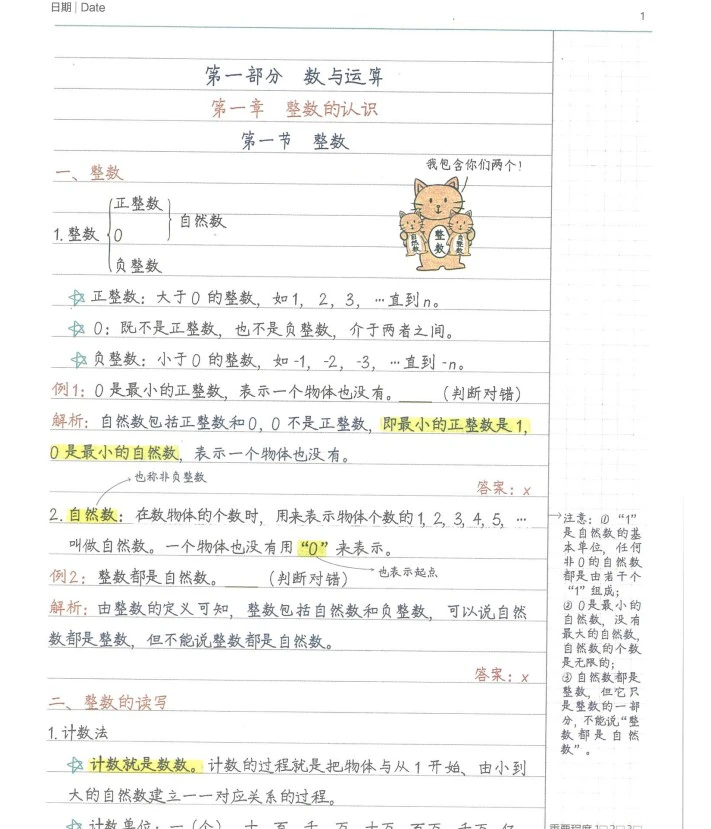 日期 | Date
1
第一部分 数与运算
第一章 整数的认识
第一节 整数
一、整数
我包含你们两个!
正整数
1.整数
0
自然数
负整数
自然数
整数
负整数
正整数：大于0的整数，如1，2，3，…直到n。
0：既不是正整数，也不是负整数，介于两者之间。
负整数：小于0的整数，如-1，-2，-3，…直到-n。
例1：0是最小的正整数，表示一个物体也没有。____（判断对错）
解析：自然数包括正整数和0，0不是正整数，即最小的正整数是1，
0是最小的自然数，表示一个物体也没有。
也称非负整数
答案：x
2.自然数：在数物体的个数时，用来表示物体个数的1，2，3，4，5，…
叫做自然数。一个物体也没有用“0”来表示。
也表示起点
例2：整数都是自然数。____（判断对错）
解析：由整数的定义可知，整数包括自然数和负整数，可以说自然
数都是整数，但不能说整数都是自然数。
答案：x
二、整数的读写
1.计数法
计数就是数数。计数的过程就是把物体与从1开始、由小到
大的自然数建立一一对应关系的过程。
计数单位：一（个）、十、百、千、万、十万、百万、千万、亿
注意：①“1”
是自然数的基
本单位，任何
非0的自然数
都是由若干个
“1”组成；
②0是最小的
自然数，没有
最大的自然数，
自然数的个数
是无限的；
③自然数都是
整数，但它只
是整数的一部
分，不能说“整
数都是自然
数”。
重要程度 1□2□3□